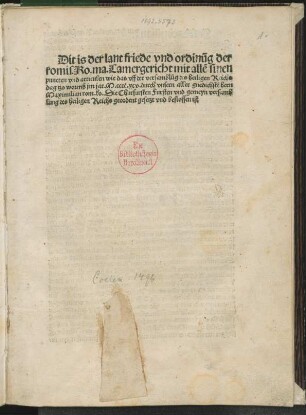 Dit is der lant friede vnd ordinũg der
komīs. Ro. ma. Camergericht mit allē sinen
puncten vnd artickelen wie das vff der versamelũg des heiligen Richs
dag tzo worms im jar. M.cccc.xcv. durch vnsern aller gnedichstē hern
Maximilian rom. ko. Die Churfursten Fursten vnd gemeyn versamē
lung des heiligen Reichs geordent gesetzt vnd beslossen ist
Ex
Bibliotheca
Coelln 1496